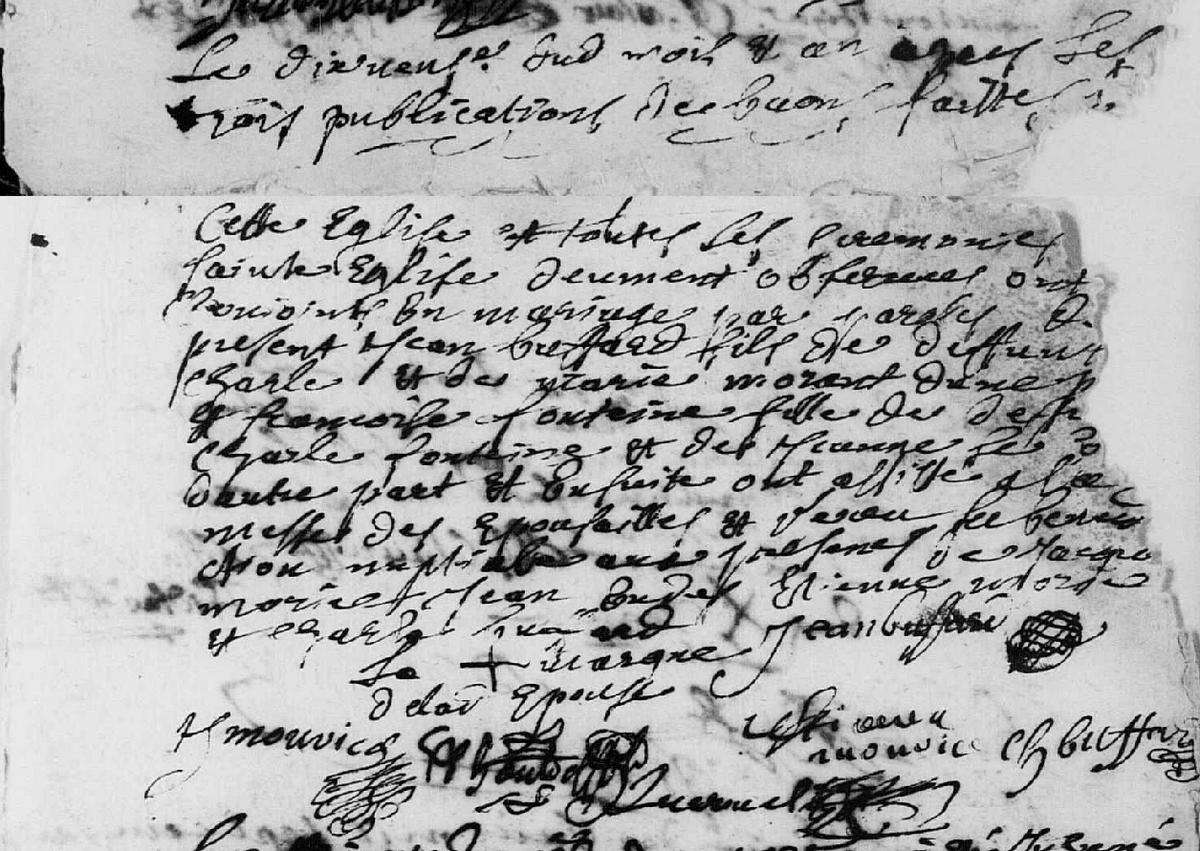 Le dixneufe dud mois et an apres Les
trois publications des bans faittes
Cette Eglise et toutes Les Ceremonies
sainte Eglise deument observees ont
Conioints En mariage par parolles d
present Jean buffard fils de deffunt
Charle et de Marie morant dune p
et francoise fontaine fille de deff
Charle fontaine et de Jeanne Le
dautre part et Ensuite ont assisté a la
messe des Epousailles et receu la benedi
ction nuptialle aux presences de Jacque
Jean Eudes Etienne
et Charle
La + marque Jean buffard
de lad Epouse
J mouvice Estienne
mouvice Ch buffard